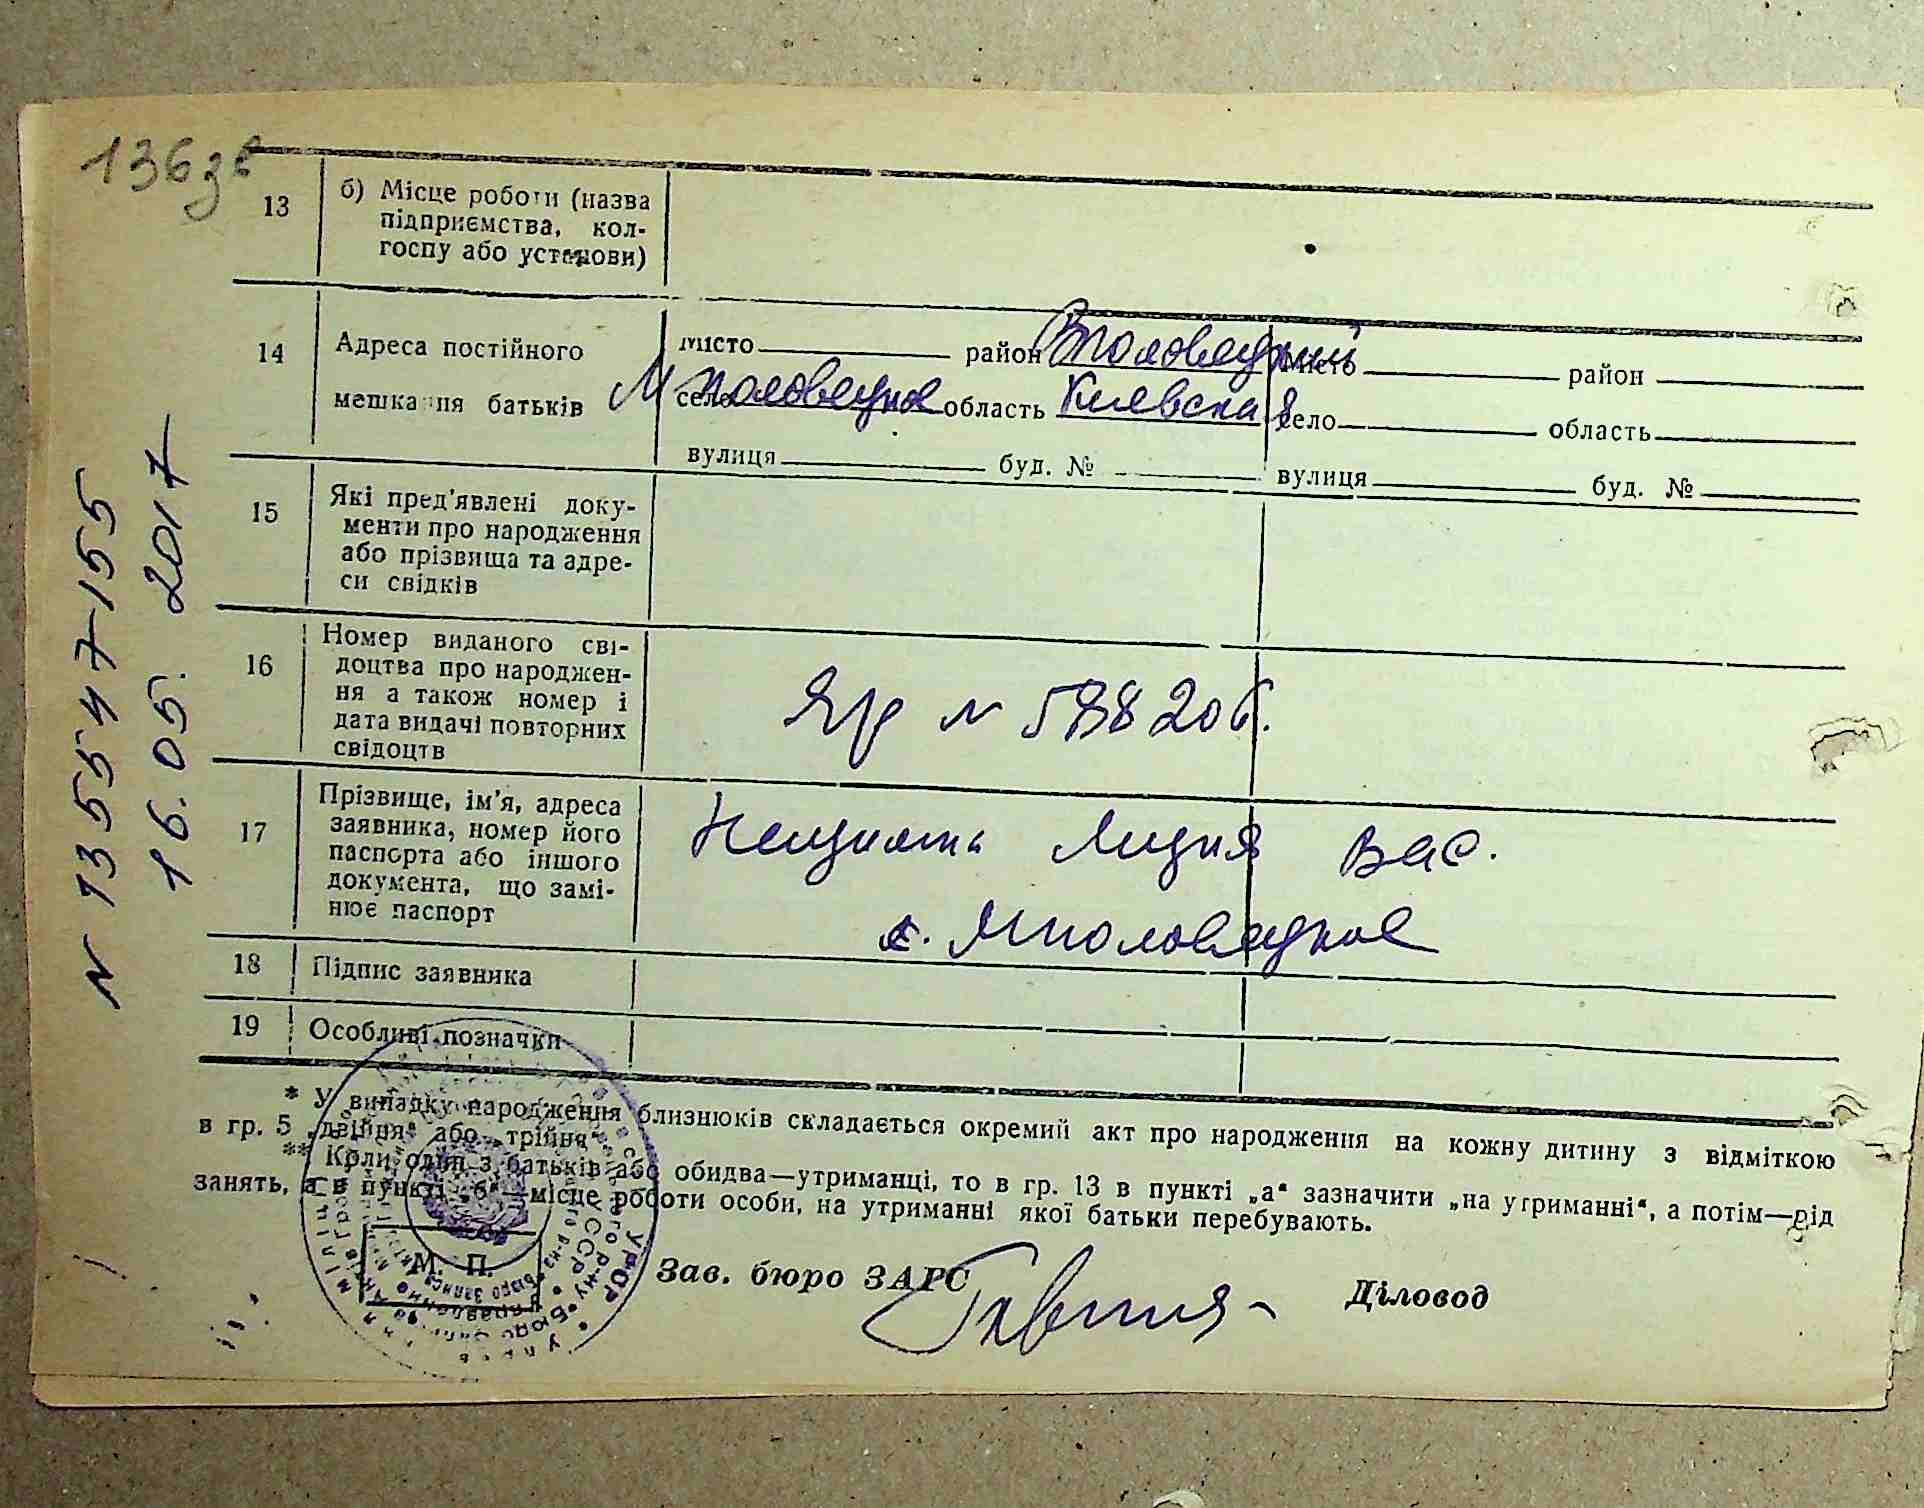 136зв
13
б) Місце роботи (назва
підприємства, кол-
госпу або установи)
14
Адреса постійного
мешкання батьків
місто район Вполовецкий
село Мполовецкое область Киевская
вулиця буд. №
місто район
село область
вулиця буд. №
15
Які пред'явлені доку-
менти про народження
або прізвища та адре-
си свідків
16
Номер виданого сві-
доцтва про народжен-
ня а також номер і
дата видачі повторних
свідоцтв
N 588206.
17
Прізвище, ім'я, адреса
заявника, номер його
паспорта або іншого
документа, що замі-
нює паспорт
Лидия Вас.
с. Мполовецкое
18
Підпис заявника
19
Особливі позначки
* У випадку народження близнюків складається окремий акт про народження на кожну дитину з відміткою
в гр. 5 „двійня“ або „трійня“.
** Коли один з батьків або обидва—утриманці, то в гр. 13 в пункті „а“ зазначити „на утриманні“, а потім—рід
занять, а в пункті „б“—місце роботи особи, на утриманні якої батьки перебувають.
М. П.
Зав. бюро ЗАРС
Діловод
N 135547155
16.05.2017